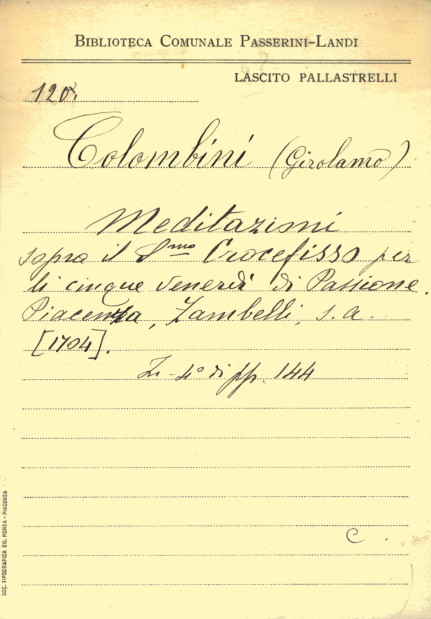 BIBLIOTECA COMUNALE PASSERINI-LANDI
LASCITO PALLASTRELLI
120
Colombini (Girolamo)
Meditazioni
sopra il S.mo Crocefisso per
li cinque venerdì di Passione.
Piacenza, Zambelli, s. a.
[1704].
In-4° di pp. 144
C.
SOC. TIPOGRAFICA ED. PORTA - PIACENZA